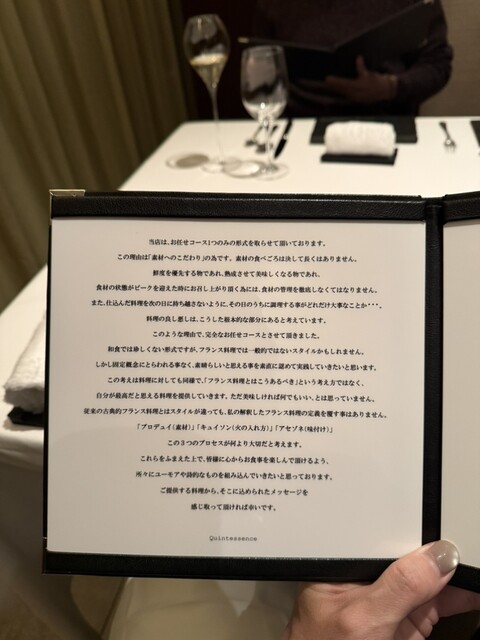 当店は、お任せコース1つのみの形式を取らせて頂いております。
この理由は「素材へのこだわり」の為です。素材の食べごろは決して長くはありません。
鮮度を優先する物であれ、熟成させて美味しくなる物であれ、
食材の状態がピークを迎えた時にお召し上がり頂く為には、食材の管理を徹底しなくてはなりません。
また、仕込んだ料理を次の日に持ち越さないように、その日のうちに調理する事がどれだけ大事なことか・・・。
料理の良し悪しは、こうした根本的な部分にあると考えています。
このような理由で、完全なお任せコースとさせて頂きました。
和食では珍しくない形式ですが、フランス料理では一般的ではないスタイルかもしれません。
しかし固定概念にとらわれる事なく、素晴らしいと思える事を素直に認めて実践していきたいと思います。
この考えは料理に対しても同様で、「フランス料理とはこうあるべき」という考え方ではなく、
自分が最高だと思える料理を提供していきます。ただ美味しければ何でもいい、とは思っていません。
従来の古典的フランス料理とはスタイルが違っても、私の解釈したフランス料理の定義を覆す事はありません。
「プロデュイ（素材）」「キュイソン（火の入れ方）」「アセゾネ（味付け）」
この3つのプロセスが何より大切だと考えます。
これらをふまえた上で、皆様に心からお食事を楽しんで頂けるよう、
所々にユーモアや詩的なものを組み込んでいきたいと思っております。
ご提供する料理から、そこに込められたメッセージを
感じ取って頂ければ幸いです。
Quintessence